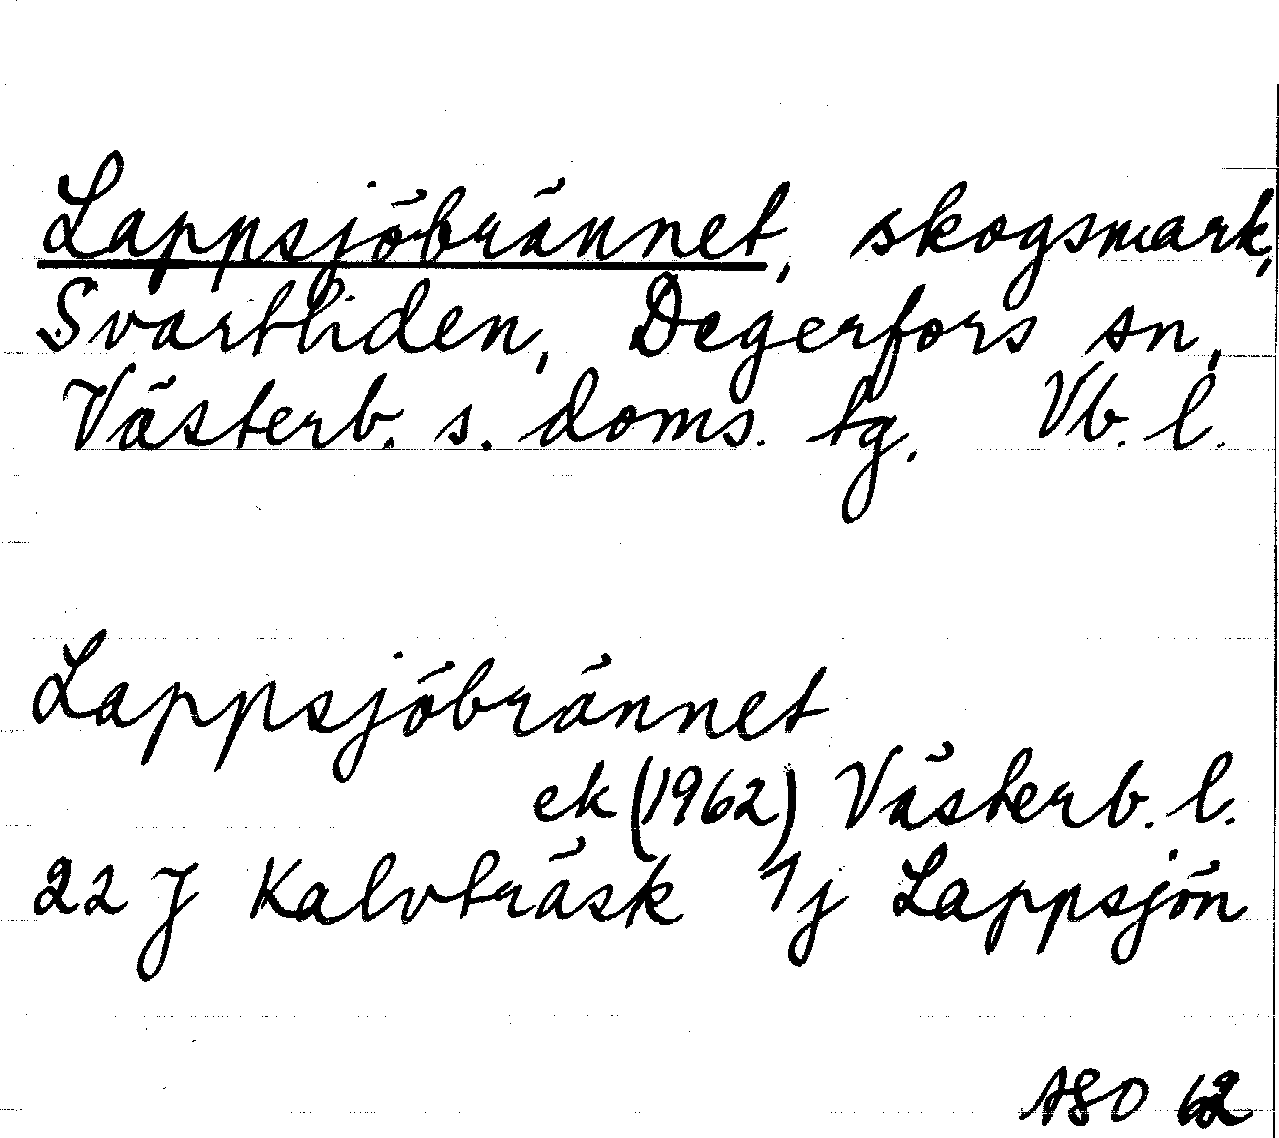 Lappsjöbrännet, skogsmark,
Svartliden, Degerfors sn,
Västerb. s. doms. tg. Vb. l.
Lappsjöbrännet
ek (1962) Västerb. l.
22 J Kalvträsk 1j Lappsjön
ASO 62